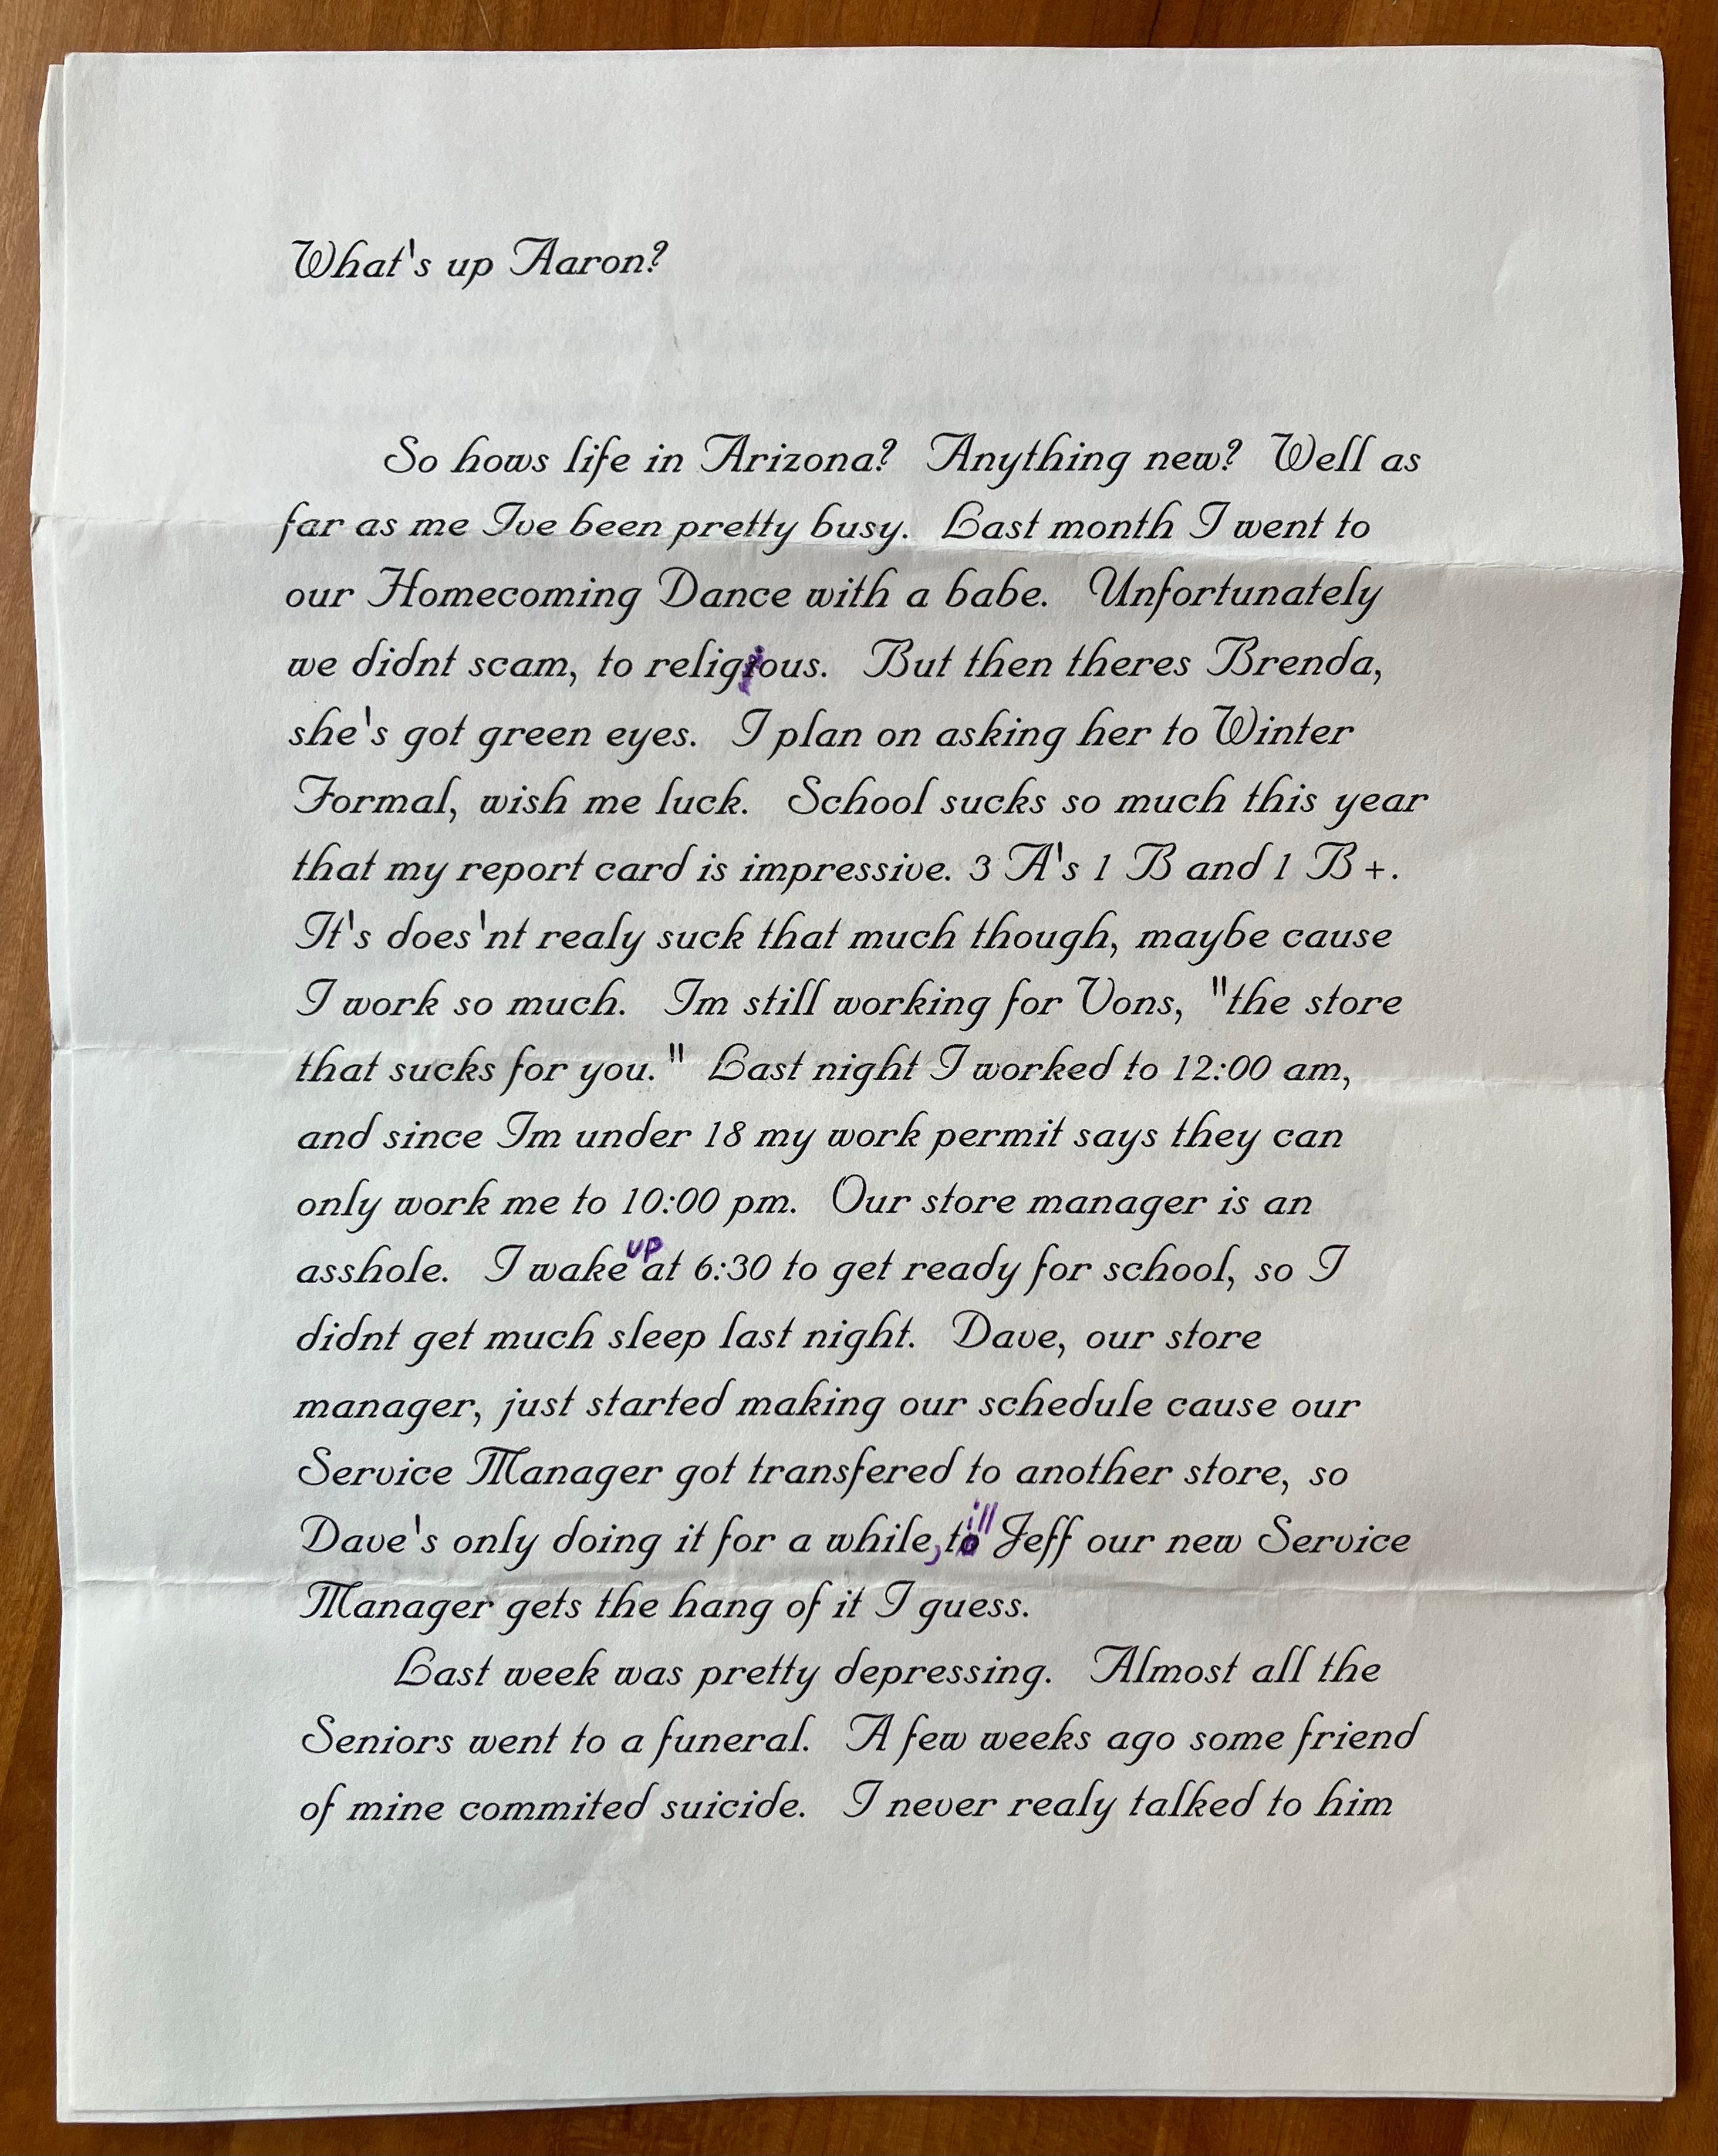 What's up Aaron?
So hows life in Arizona? Anything new? Well as
far as me Ive been pretty busy. Last month I went to
our Homecoming Dance with a babe. Unfortunately
we didnt scam, to religious. But then theres Brenda,
she's got green eyes. I plan on asking her to Winter
Formal, wish me luck. School sucks so much this year
that my report card is impressive. 3 A's 1 B and 1 B+.
It's does'nt realy suck that much though, maybe cause
I work so much. Im still working for Vons, "the store
that sucks for you." Last night I worked to 12:00 am,
and since Im under 18 my work permit says they can
only work me to 10:00 pm. Our store manager is an
asshole. I wake up at 6:30 to get ready for school, so I
didnt get much sleep last night. Dave, our store
manager, just started making our schedule cause our
Service Manager got transfered to another store, so
Dave's only doing it for a while, till Jeff our new Service
Manager gets the hang of it I guess.
Last week was pretty depressing. Almost all the
Seniors went to a funeral. A few weeks ago some friend
of mine commited suicide. I never realy talked to him